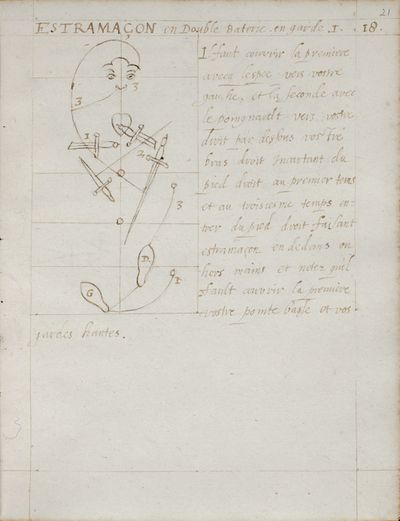 21
ESTRAMAÇON en Double Baterie en garde .1. .18.
Il faut couvrir la premiere
avecq lespee vers vostre
gauche, et la seconde avec
le poingnault vers vostre
droit par dessus vostre
bras droit
pied droit au premier tems
et au troisiesme temps en-
trer du pied droit faisant
estramaçon en dedans ou
hors mains et notez quil
fault couvrir la premiere
vostre pointe basse et vos-
gardes hautes.
3
3
1
2
3
D
G
1